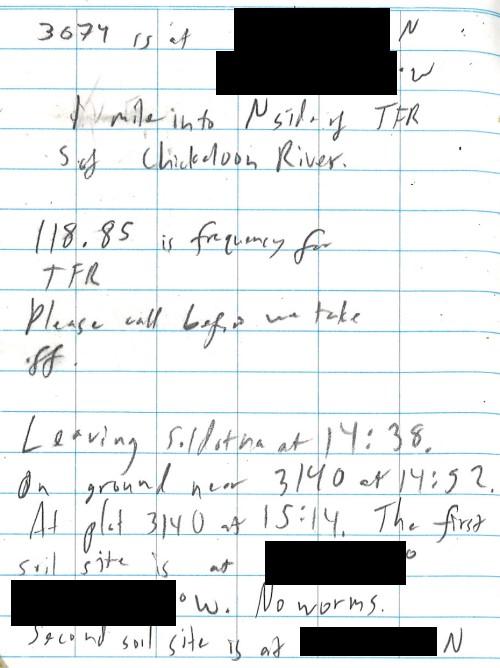 3674 is at N
°W
1 mile into N side of TFR
S of Chickaloon River.
118.85 is frequency for
TFR
Please call before we take
off.
Leaving Soldotna at 14:38.
On ground near 3140 at 14:52.
At plot 3140 at 15:14. The first
soil site is at °
°W. No worms.
Second soil site is at N